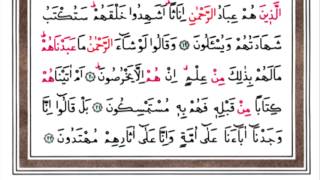 الَّذِينَ هُمْ عِبَادُ الرَّحْمٰنِ اِنَاثًا اَشَهِدُوا خَلْقَهُمْ سَتُكْتَبُ
شَهَادَتُهُمْ وَيُسْـَٔلُونَ ﴿١٩﴾ وَقَالُوا لَوْ شَٓاءَ الرَّحْمٰنُ مَا عَبَدْنَاهُمْ
مَالَهُمْ بِذٰلِكَ مِنْ عِلْمٍ اِنْ هُمْ اِلَّا يَخْرُصُونَ ﴿٢٠﴾ اَمْ اٰتَيْنَاهُمْ
كِتَابًا مِنْ قَبْلِهِ فَهُمْ بِهِ مُسْتَمْسِكُونَ ﴿٢١﴾ بَلْ قَالُوا اِنَّا
وَجَدْنَا اٰبَٓاءَنَا عَلٰٓى اُمَّةٍ وَاِنَّا عَلٰٓى اٰثَارِهِمْ مُهْتَدُونَ ﴿٢٢﴾